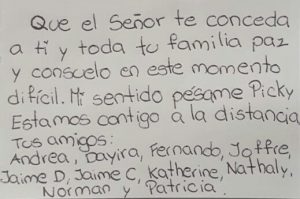 Que el Señor te conceda
a ti y toda tu familia paz
y consuelo en este momento
difícil. Mi sentido pésame Picky
Estamos contigo a la distancia
Tus amigos:
Andrea, Dayira, Fernando, Joffre,
Jaime D, Jaime C, Katherine, Nathaly,
Norman y Patricia.